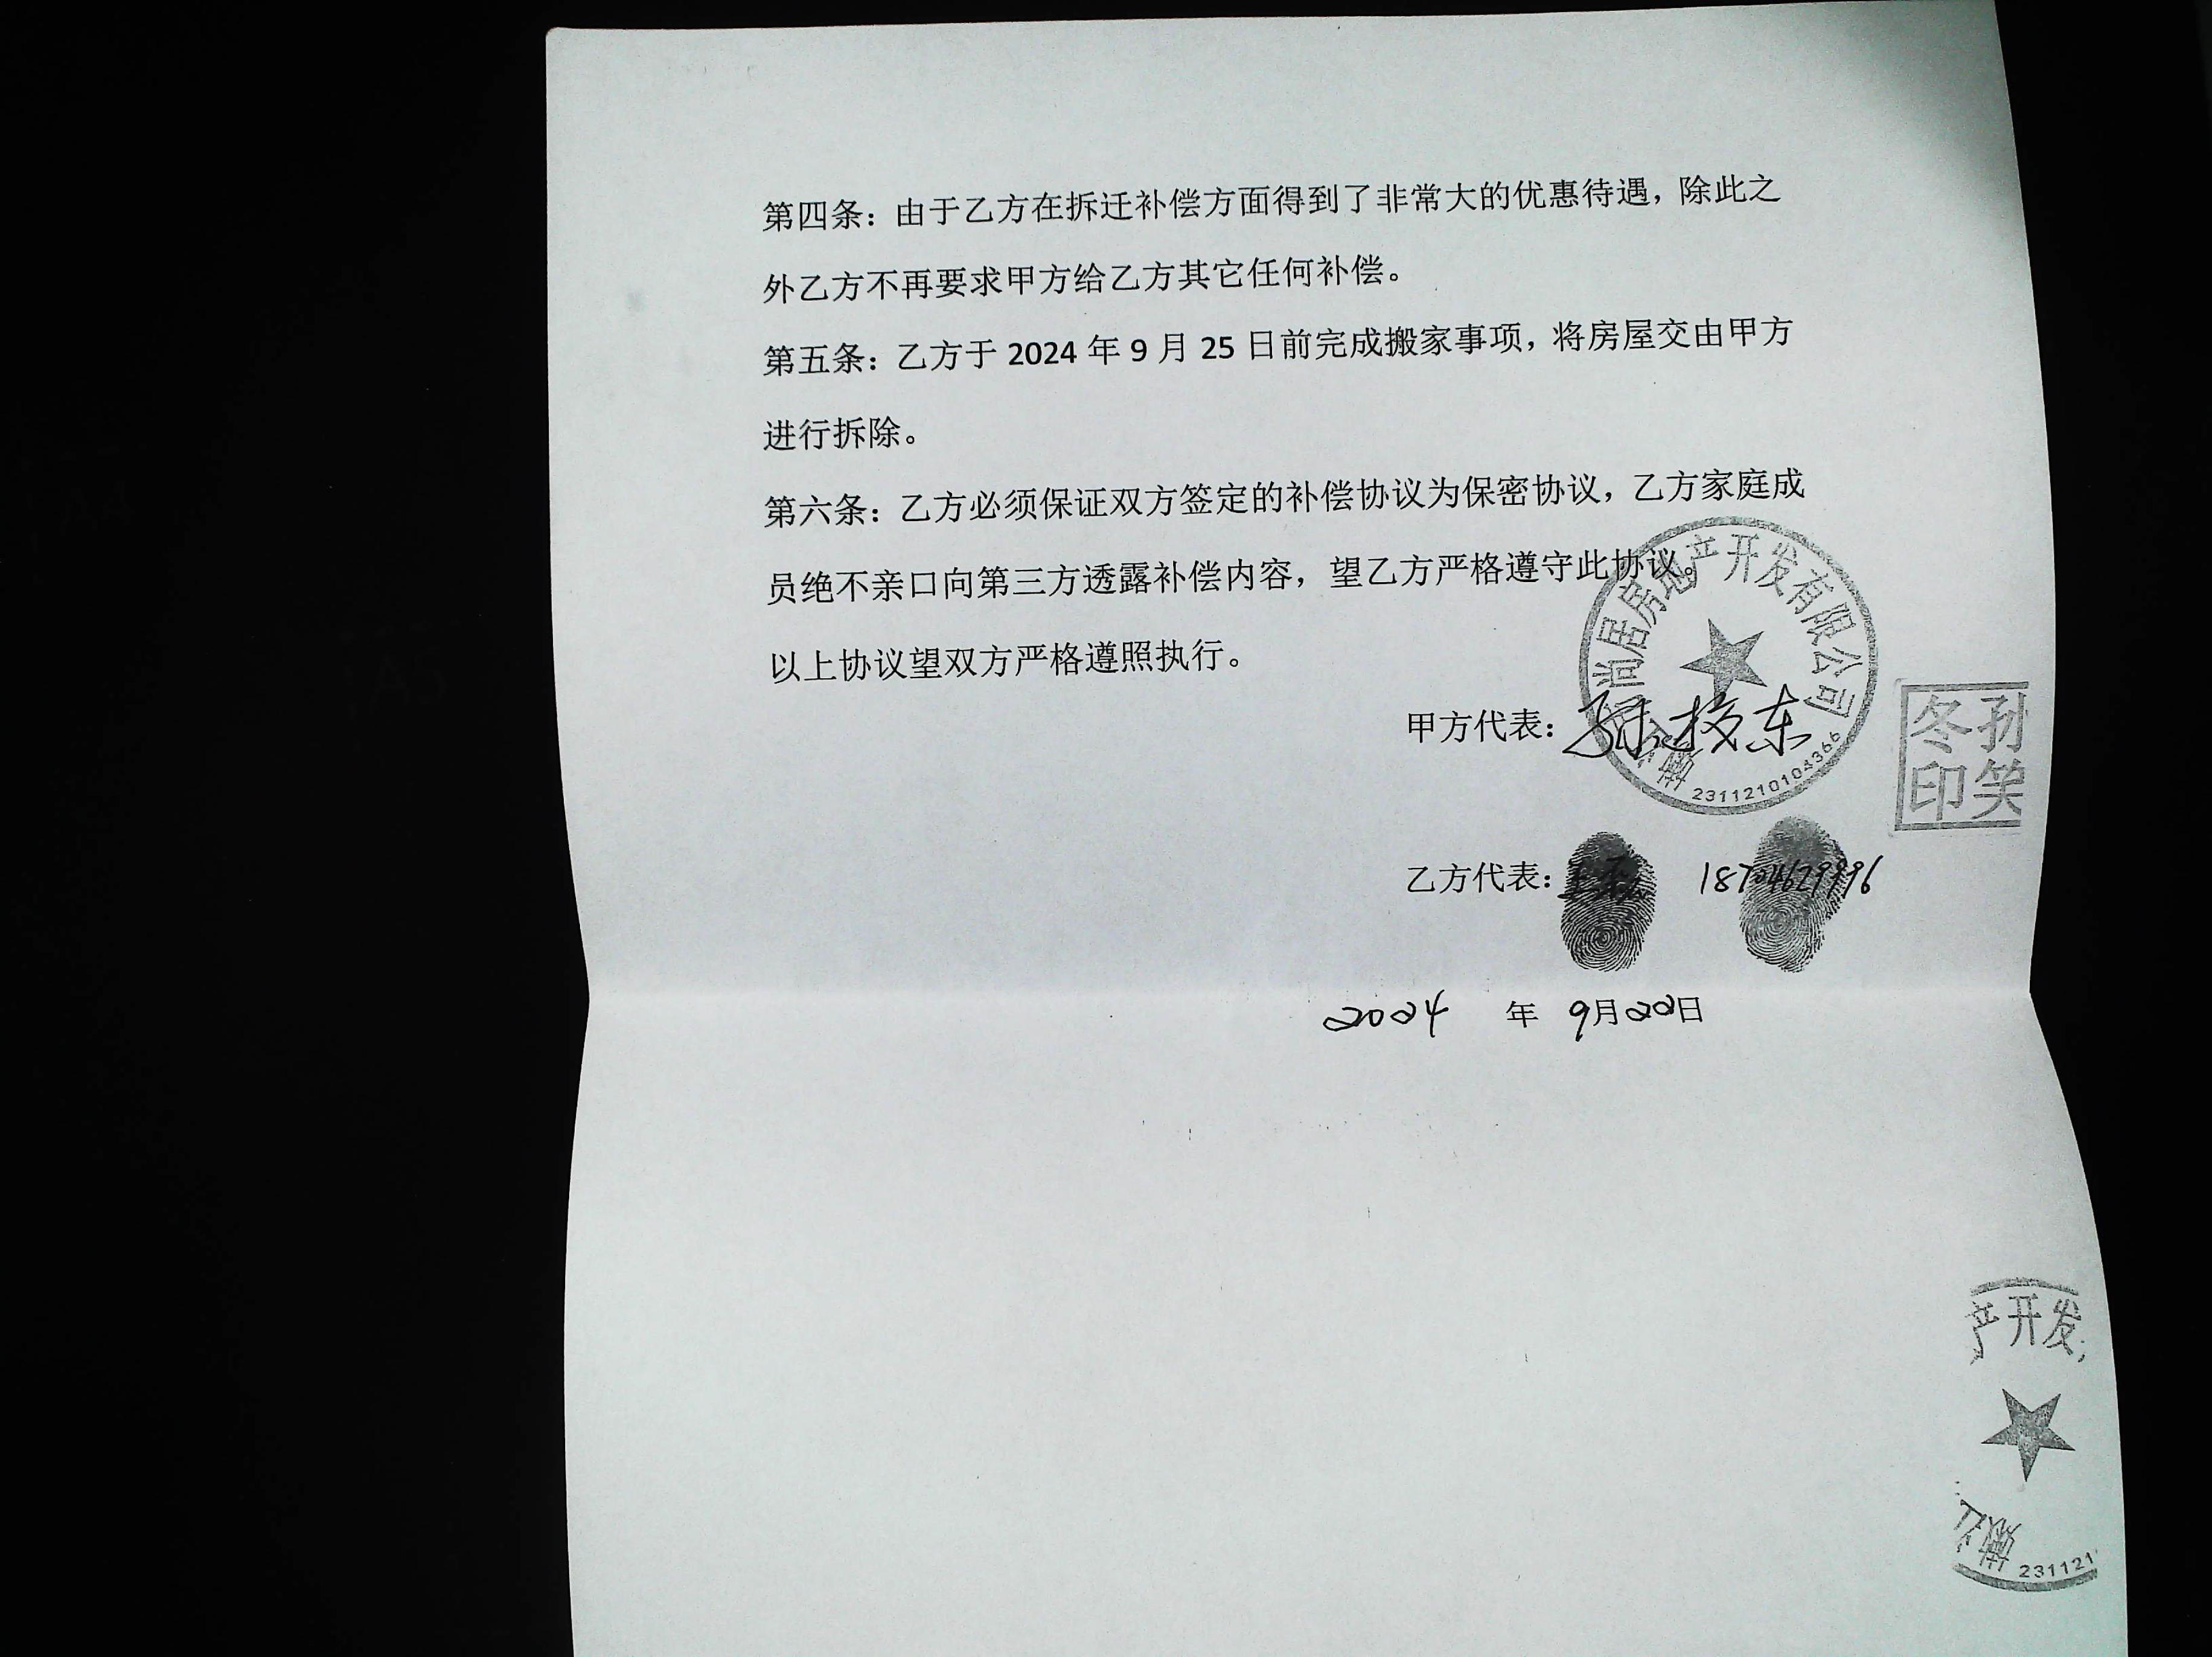 第四条：由于乙方在拆迁补偿方面得到了非常大的优惠待遇，除此之
外乙方不再要求甲方给乙方其它任何补偿。
第五条：乙方于 2024 年 9 月 25 日前完成搬家事项，将房屋交由甲方
进行拆除。
第六条：乙方必须保证双方签定的补偿协议为保密协议，乙方家庭成
员绝不亲口向第三方透露补偿内容，望乙方严格遵守此协议。
以上协议望双方严格遵照执行。
尚居房地产开发有限公司
2311210104366
甲方代表：
孙笑
冬印
乙方代表： 18704629996
2024 年 9月22日
产开发
231121